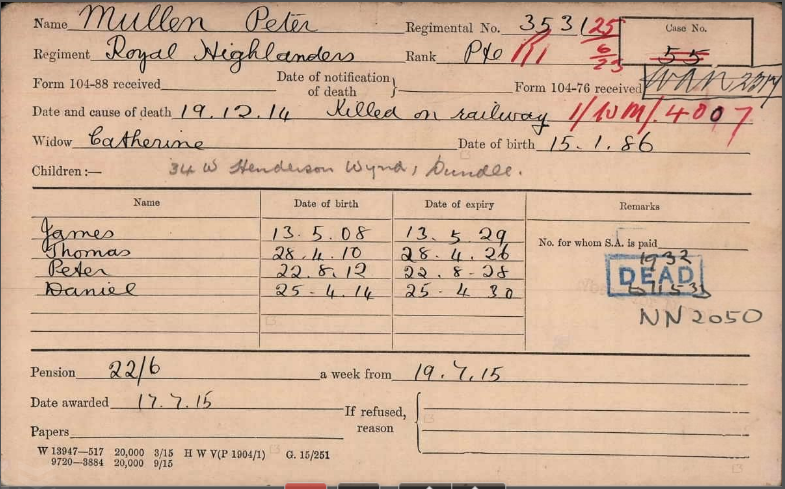 Name Mullen Peter Regimental No. 3531 25 Case No.
Regiment Royal Highlanders Rank Pte 1/1 6/23 55
Form 104-88 received Date of notification of death } Form 104-76 received WAN
Date and cause of death 19.12.14 Killed on railway 1/WM/4007
Widow Catherine Date of birth 15.1.86
Children:— 34 W Henderson Wynd, Dundee.
Name Date of birth Date of expiry Remarks
James 13.5.08 13.5.29
Thomas 28.4.10 28.4.26 No. for whom S.A. is paid
Peter 22.8.12 22.8-28 1932
Daniel 25-4.14 25-4 30 DEAD
NN 2050
Pension 22/6 a week from 19.7.15
Date awarded 17.7.15 If refused, reason
Papers
W 13947—517 20,000 3/15 H W V(P 1904/1) G. 15/251
9720—3884 20,000 9/15